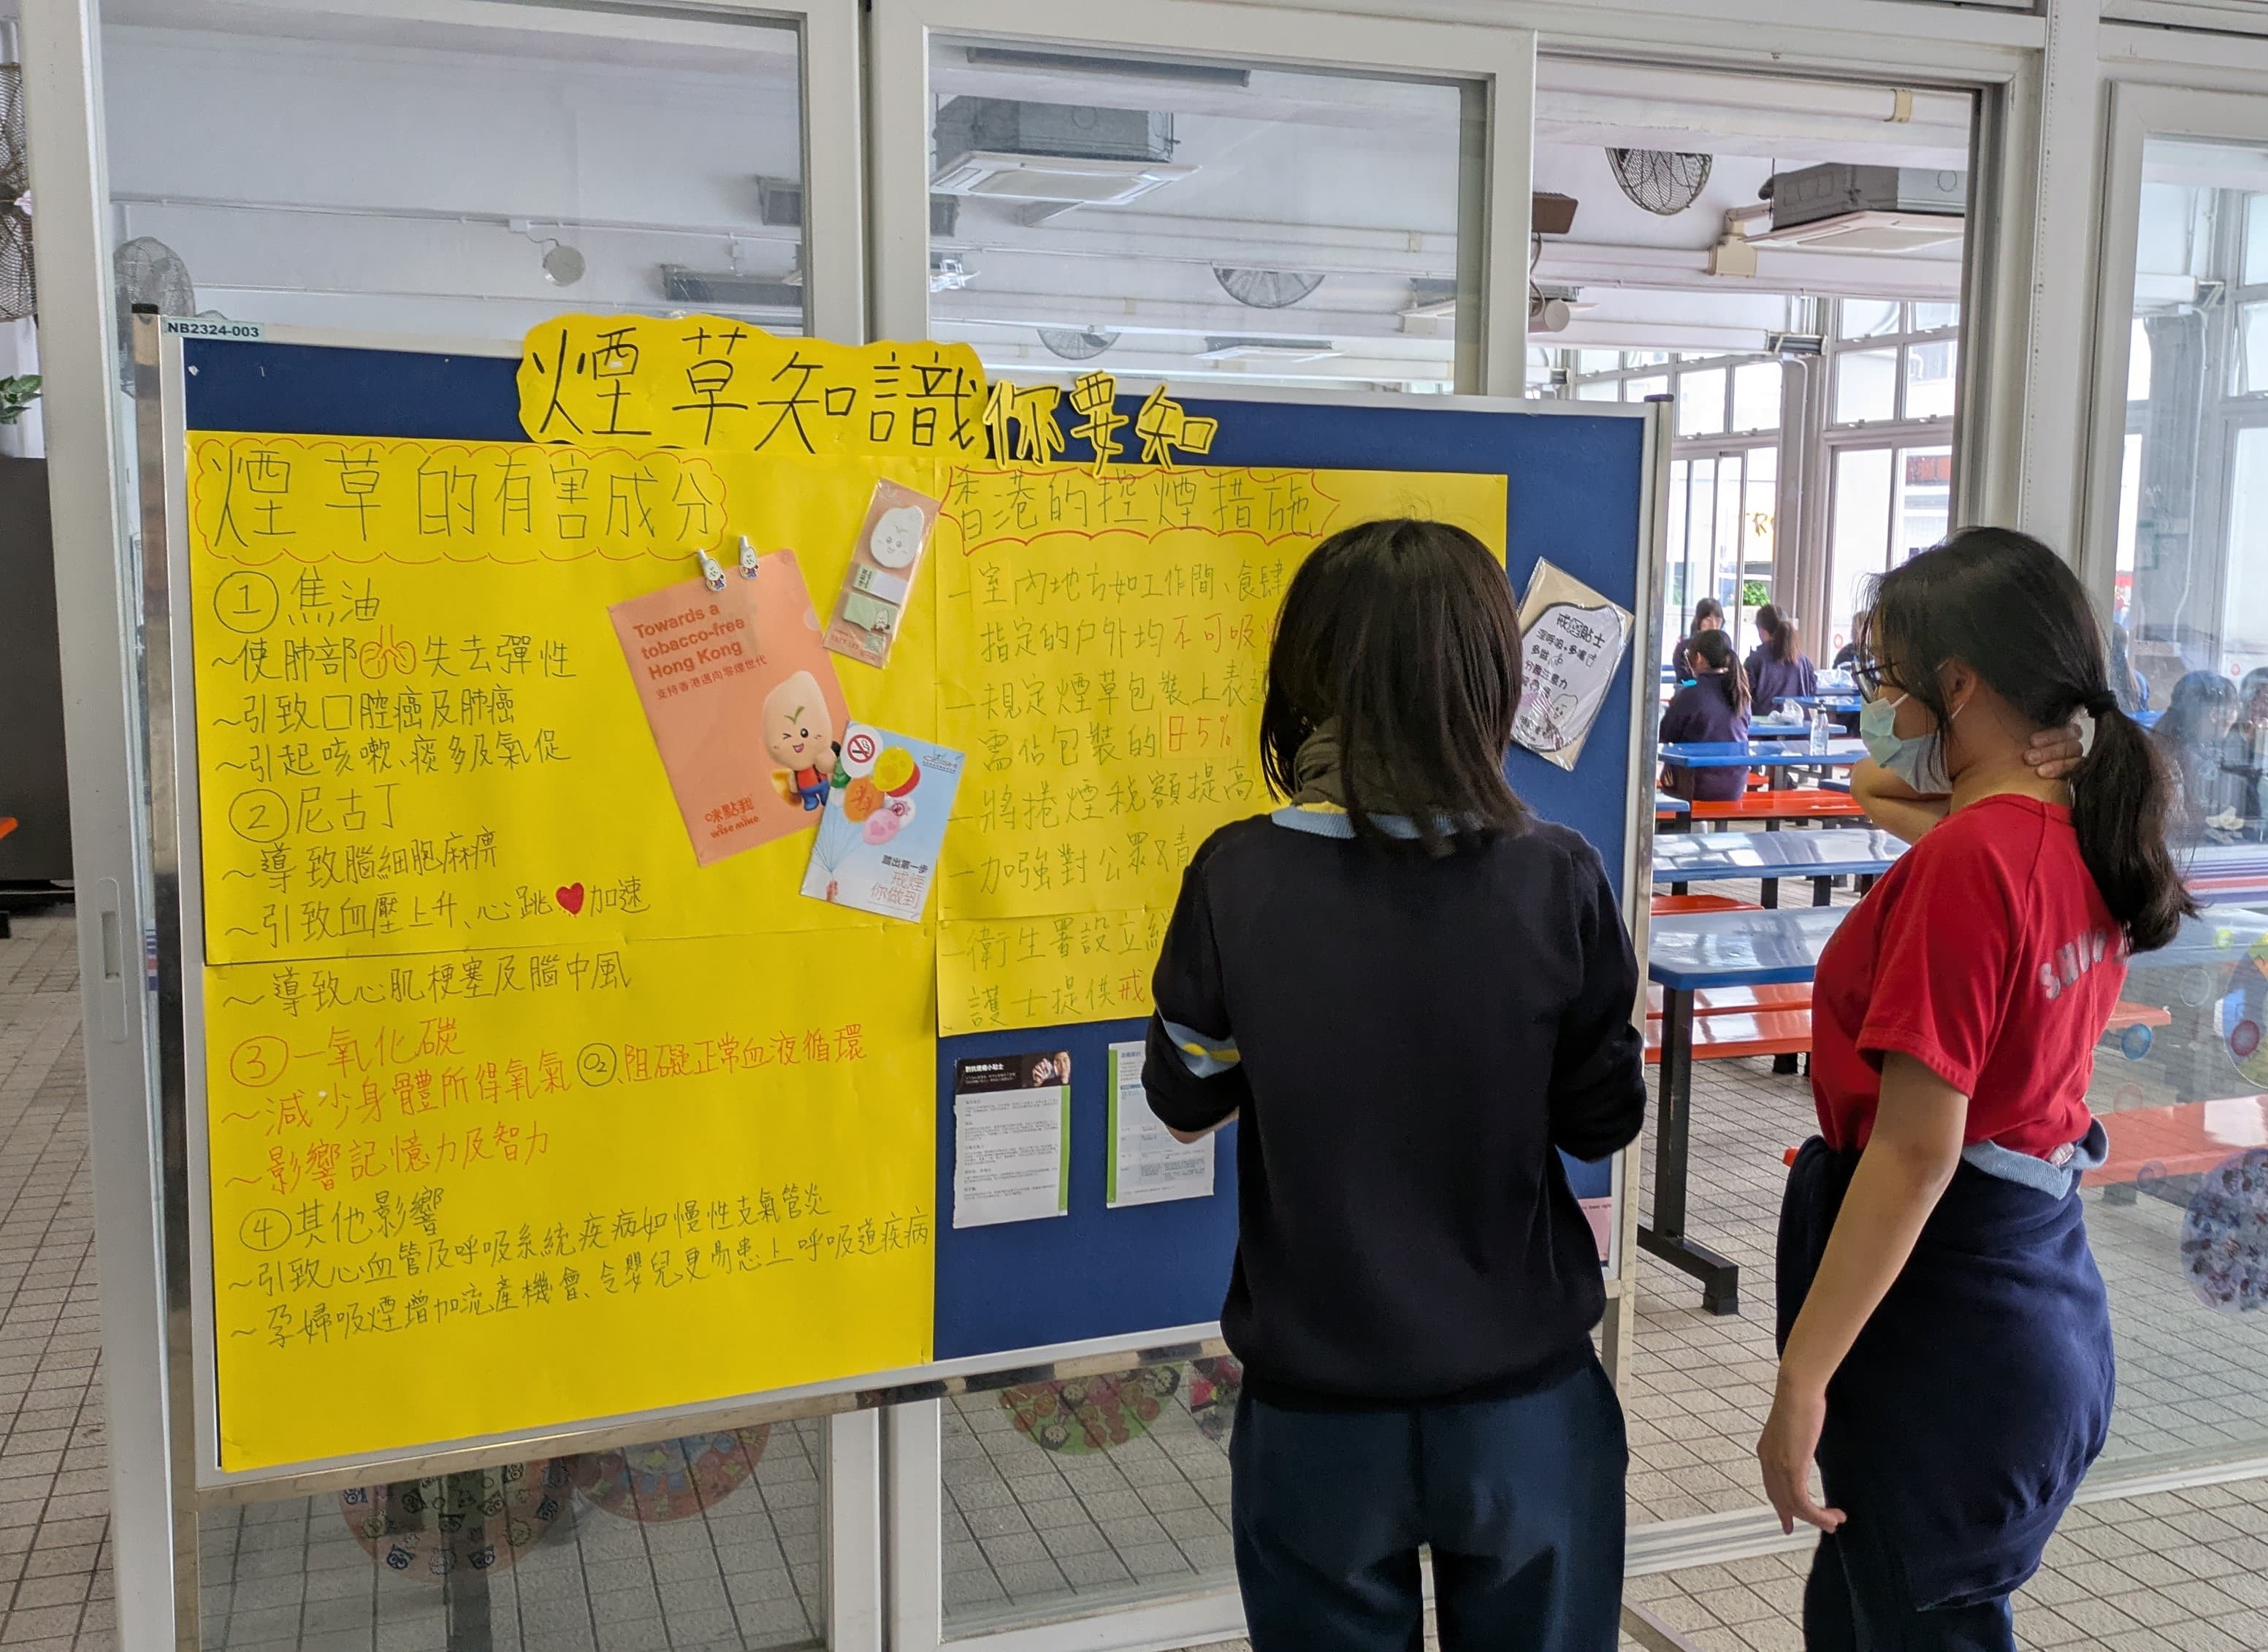 NB2324-003
煙草知識你要知
煙草的有害成分
① 焦油
~使肺部失去彈性
~引致口腔癌及肺癌
~引起咳嗽、痰多及氣促
② 尼古丁
~導致腦細胞麻痹
~引致血壓上升、心跳加速
~導致心肌梗塞及腦中風
③ 一氧化碳
~減少身體所得氧氣 O₂、阻礙正常血液循環
~影響記憶力及智力
④ 其他影響
~引致心血管及呼吸系統疾病如慢性支氣管炎
~孕婦吸煙增加流產機會、令嬰兒更易患上呼吸道疾病
Towards a
tobacco-free
Hong Kong
支持香港邁向零煙世代
咪點我
wise mike
踏出第一步
戒煙
你做到
香港的控煙措施
-室內地方如工作間、食肆
指定的户外均不可吸
-規定煙草包裝上表
需佔包裝的85%
-將捲煙稅額提高
-加強對公眾及青
-衛生署設立
護士提供戒
戒煙貼士
深呼吸、多喝
多做
分散注意力
SHU